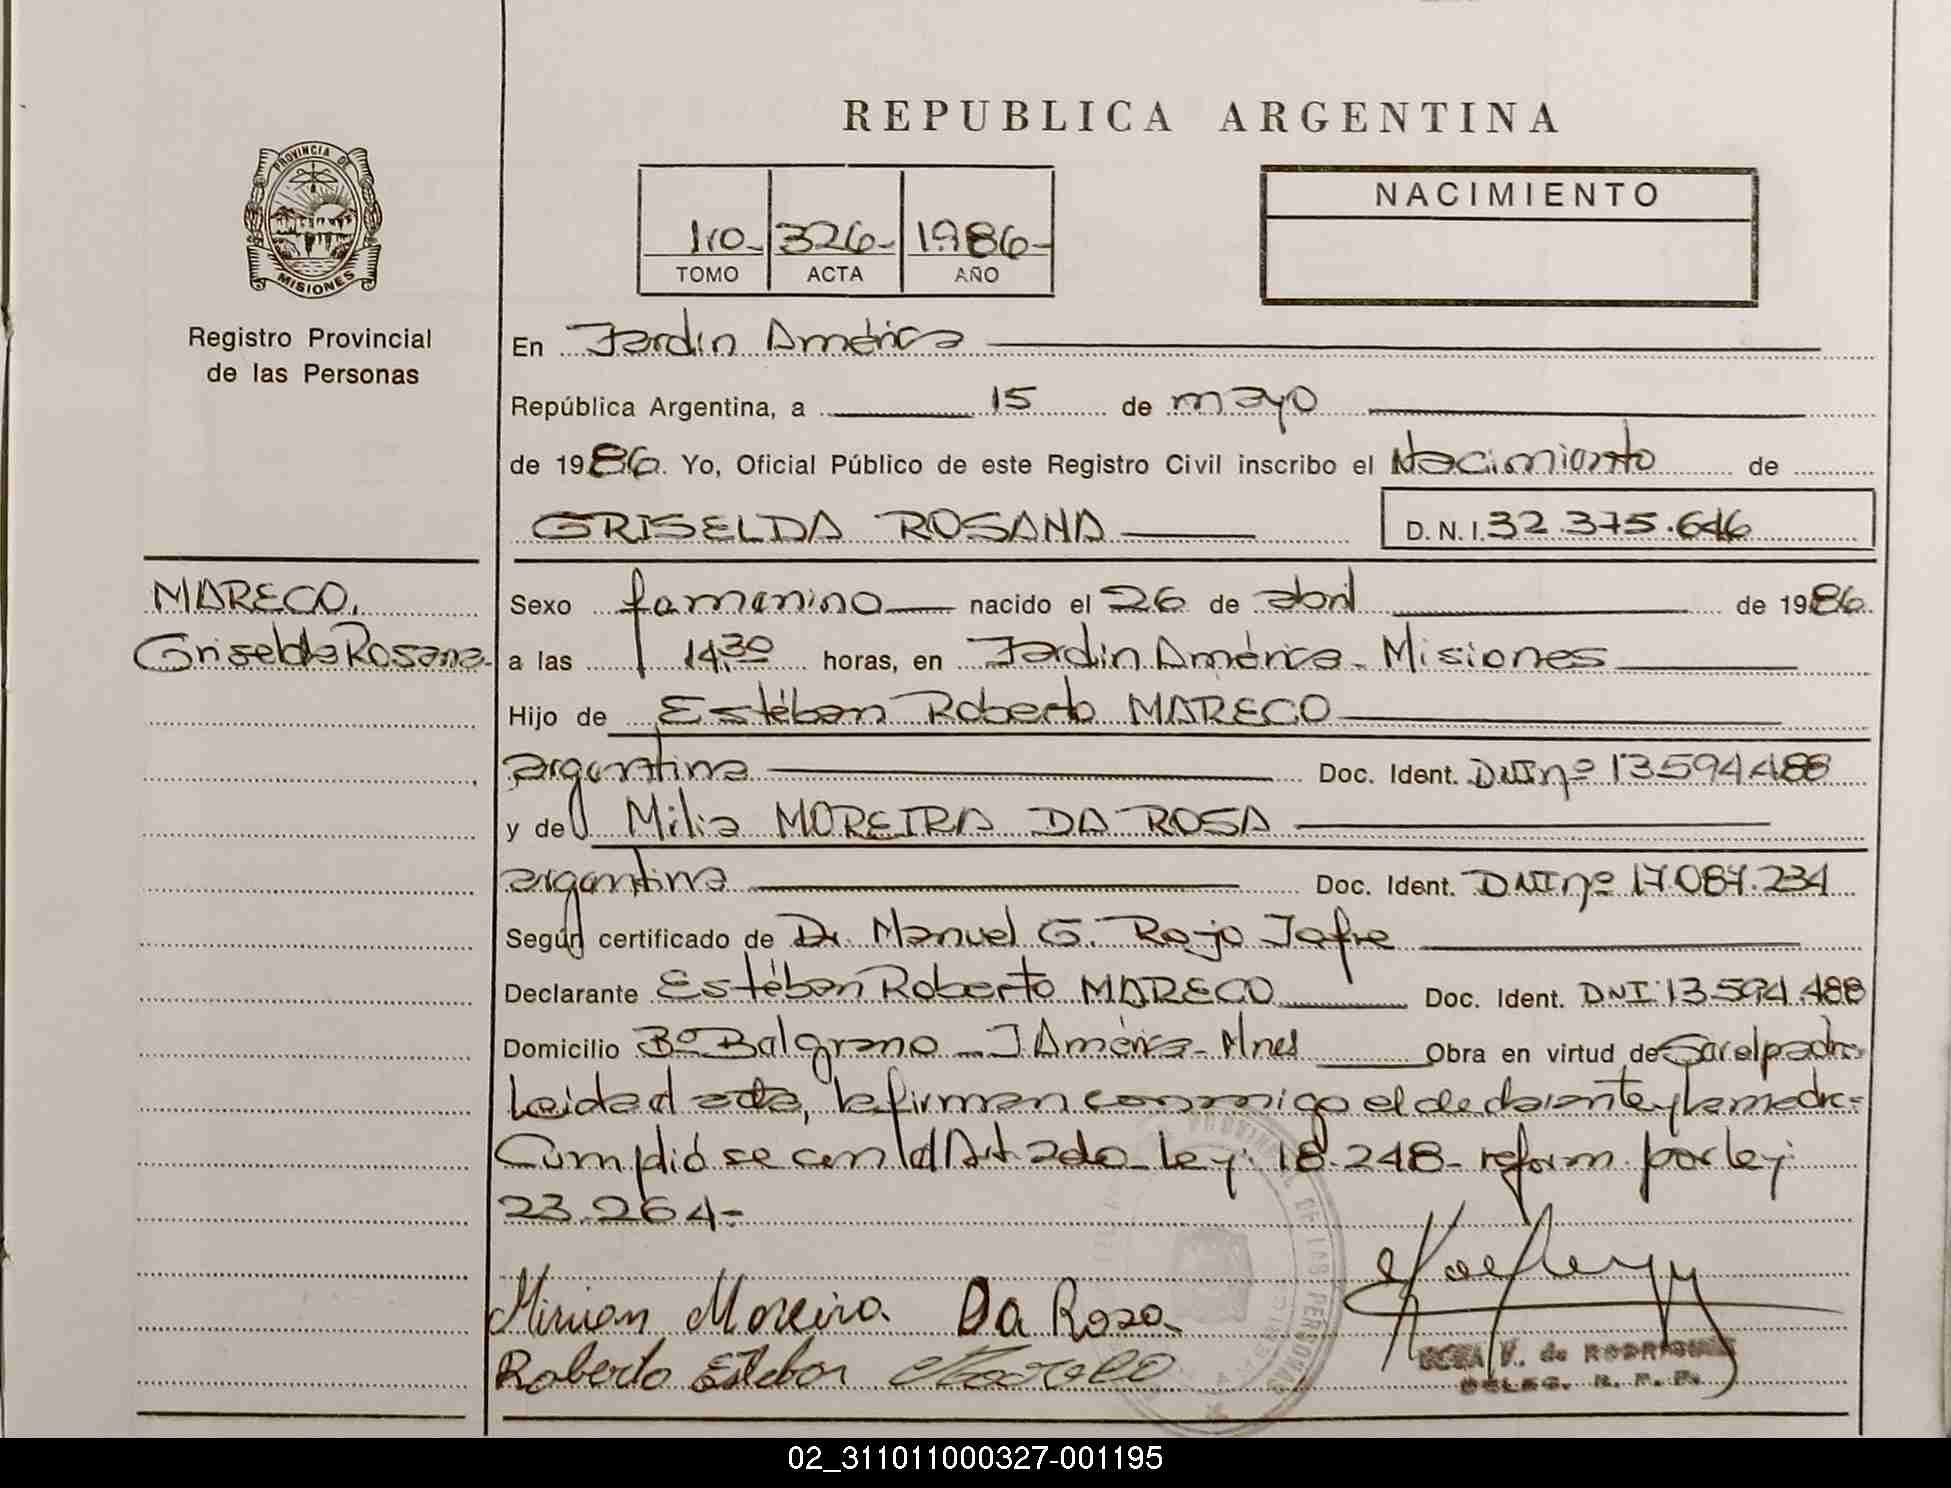 REPUBLICA ARGENTINA
PROVINCIA DE
MISIONES
Registro Provincial
de las Personas
1ro- 326- 1986-
TOMO ACTA AÑO
NACIMIENTO
En Jardin América
República Argentina, a 15 de mayo
de 1986. Yo, Oficial Público de este Registro Civil inscribo el Nacimiento de
GRISELDA ROSANA D. N. I. 32.375.646
MARECO,
Griselda Rosana-
Sexo femenino nacido el 26 de abril de 1986.
a las 14,30 horas, en Jardin América - Misiones
Hijo de Estéban Roberto MARECO
argentina Doc. Ident. DNI nº 13.594.488
y de Milia MOREIRA DA ROSA
argentina Doc. Ident. DNI nº 17.087.234
Según certificado de Dr. Manuel G. Rojo Jofre
Declarante Estéban Roberto MARECO Doc. Ident. DNI 13.594.488
Domicilio Bº Belgrano - J. América - Mnes Obra en virtud de Ser el padre
Leida el acta, la firman conmigo el declarante y la madre-
Cumplióse con el Art. 2do- Ley: 18.248- reform. por ley:
23.264-
Mirian Moreira Da Rosa
Roberto Esteban Mareco
V. de RODRIGUEZ
DELEG. R. P. P.
PROVINCIAL DE LAS PERSONAS
02_311011000327-001195